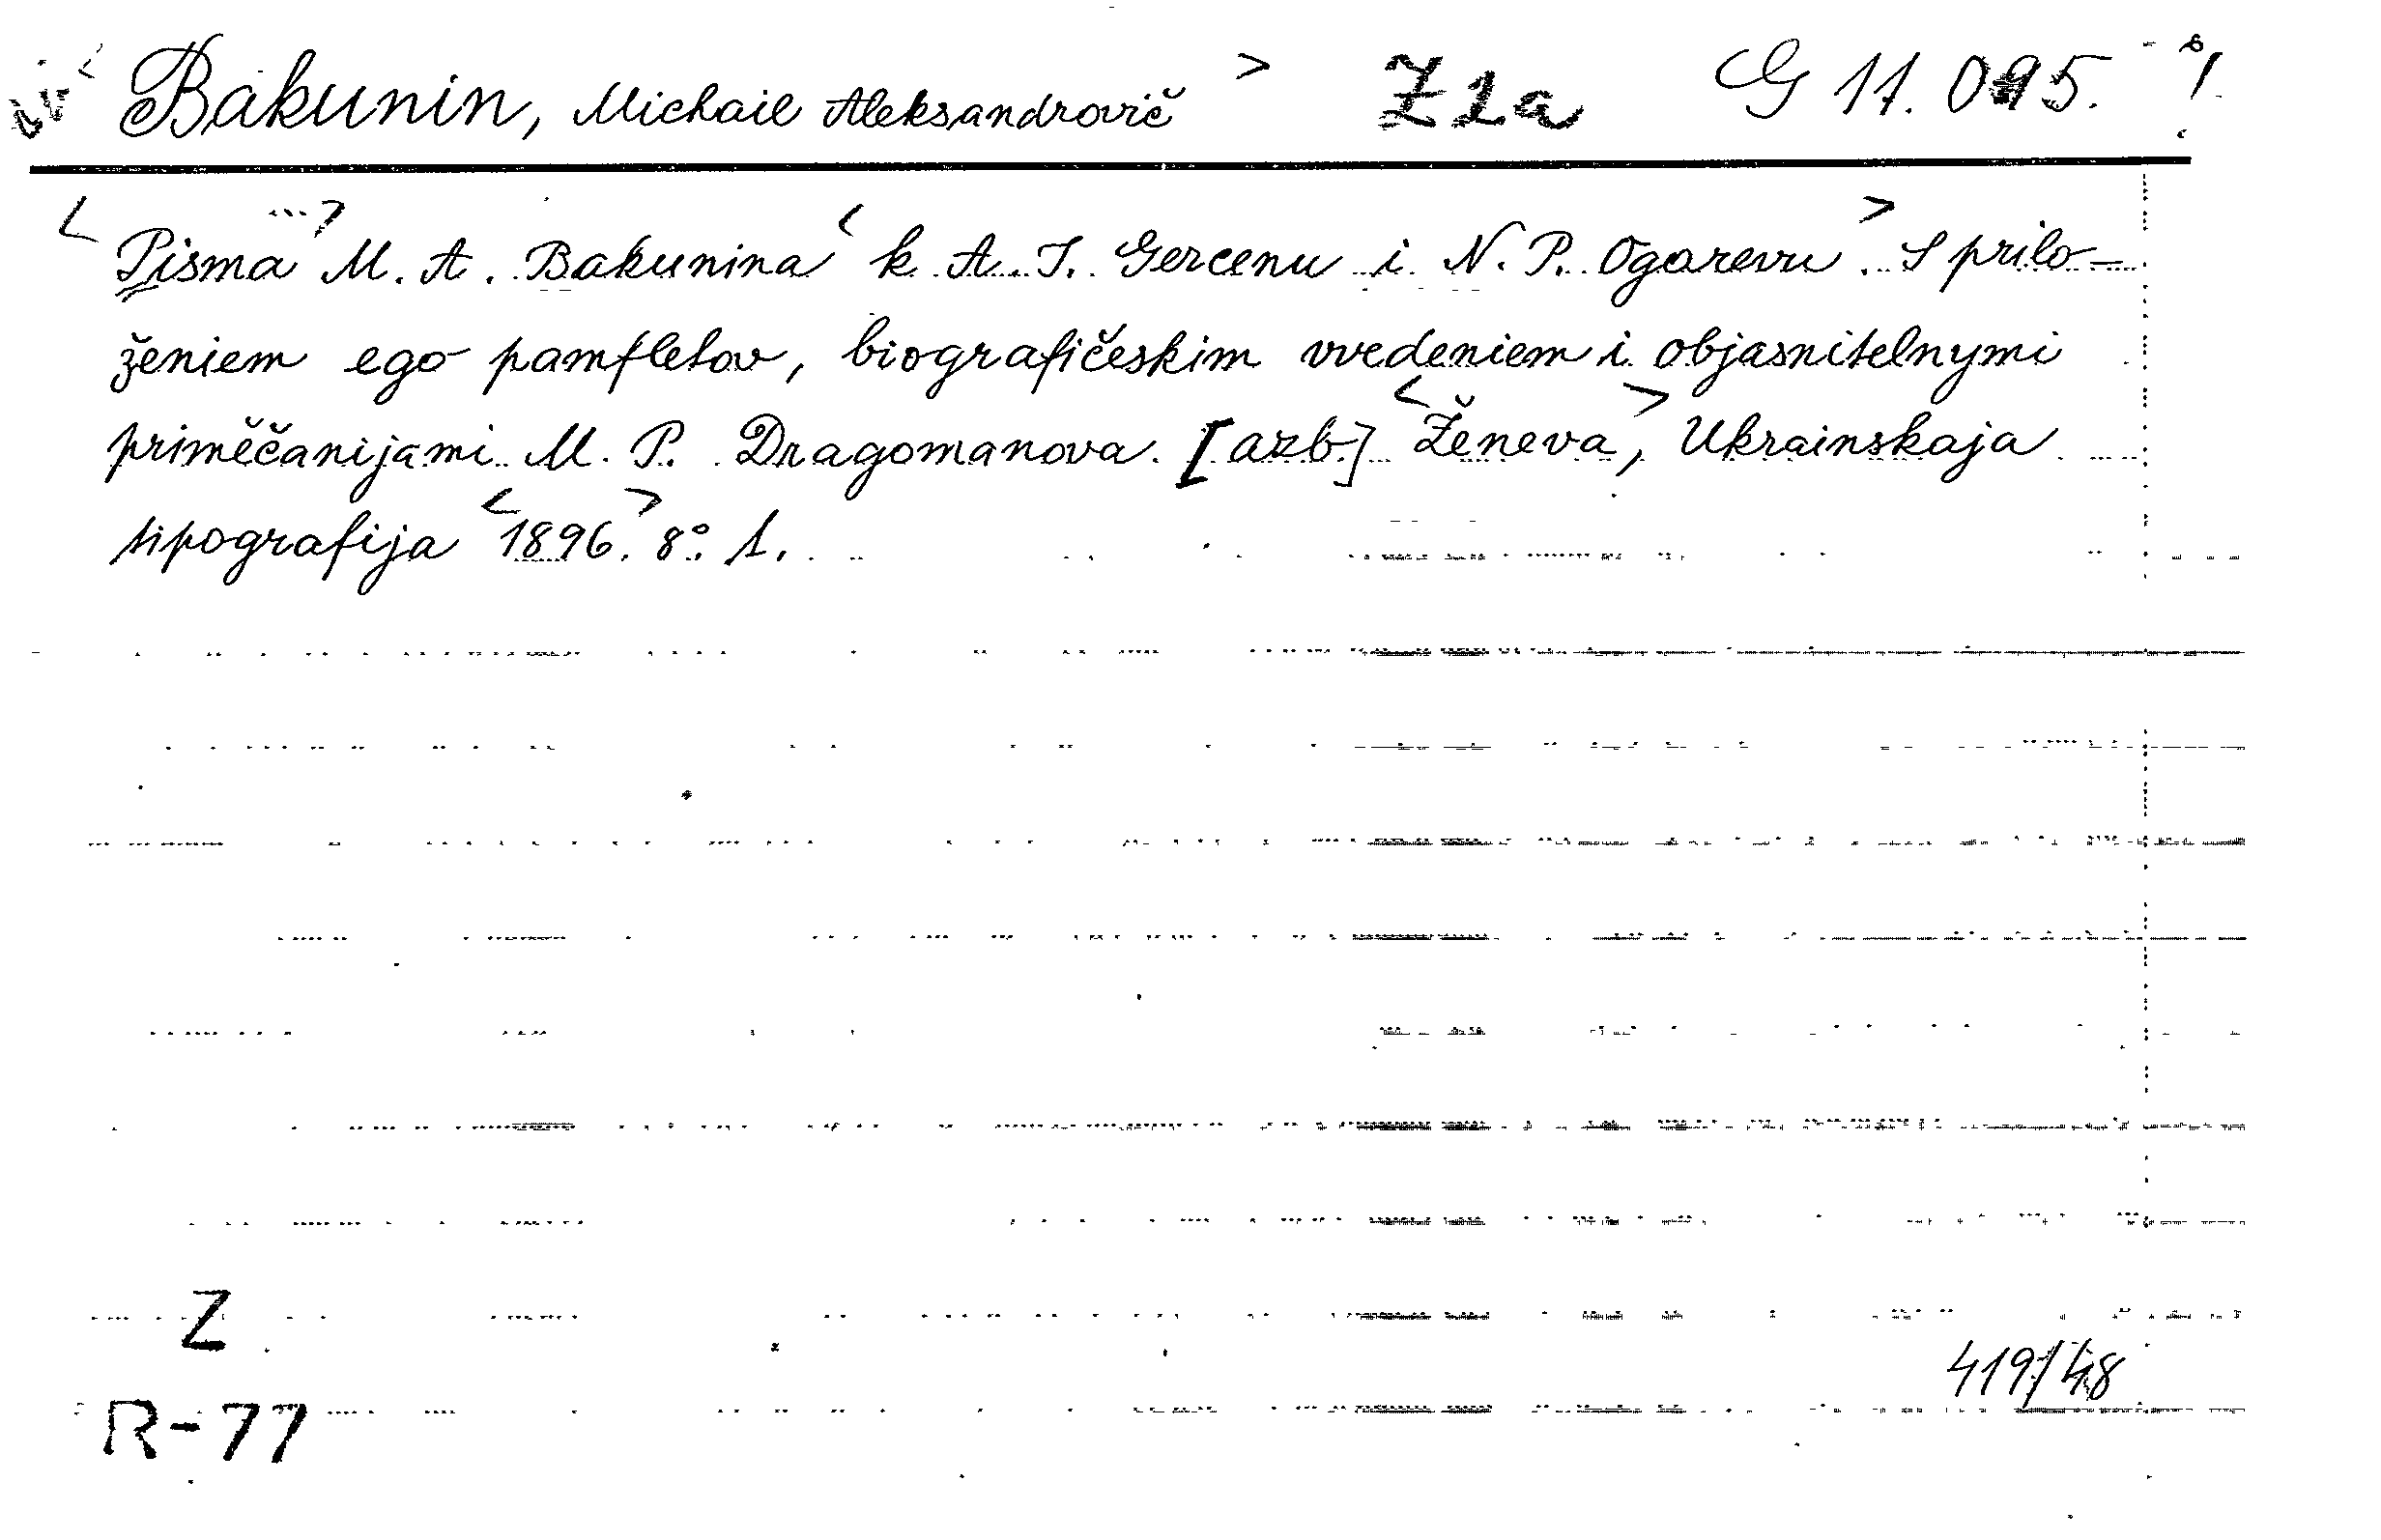 < Bakunin, Michail Aleksandrovič > Z1a G 11.095.
< Pisma ...> M. A. Bakunina < k A. I. Gercenu i N. P. Ogarevu >. S prilo-
ženiem ego pamfletov, biografičeskim vvedeniem i objasnitelnymi
priměčanijami M. P. Dragomanova. [azb.] < Ženeva >, Ukrainskaja
tipografija < 1896. > 8°. 1.
Z
419/48
R-77